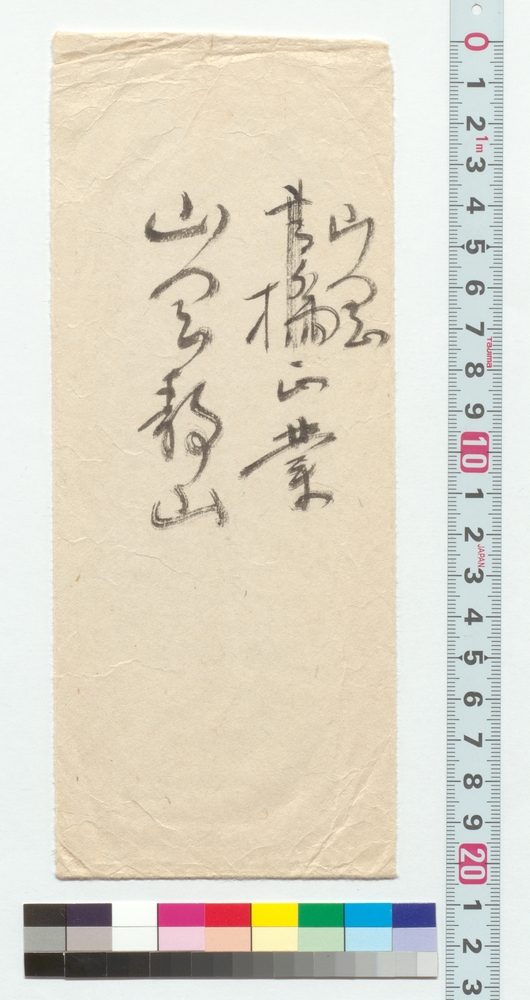 山岡
高橋正業
山岡静山
0
1
2
1m
3
4
5
6
7
Tajima
8
9
10
1
2
JAPAN
3
4
5
6
7
8
9
20
1
2
3